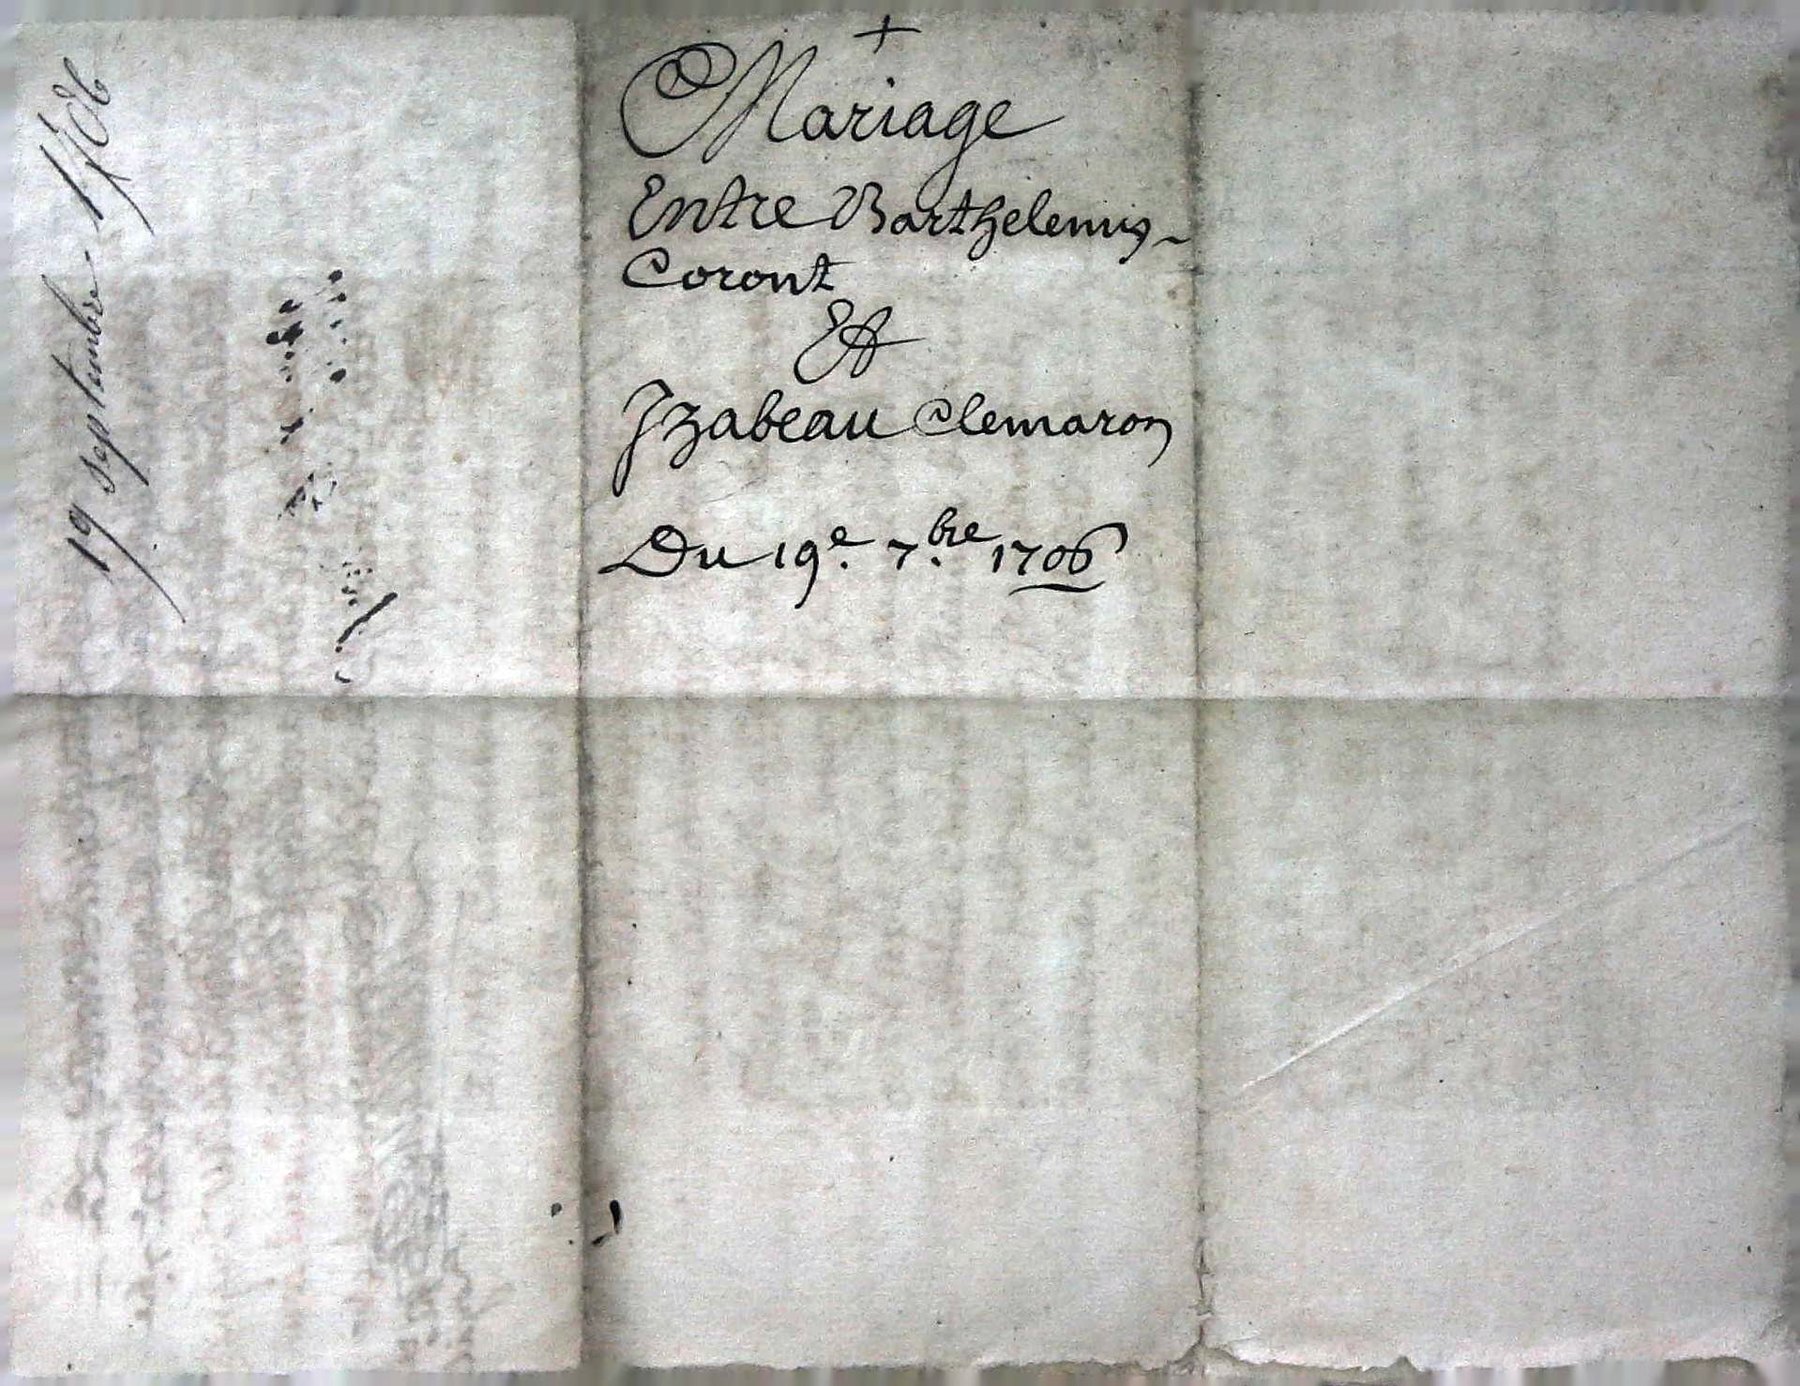 +
Mariage
Entre Barthelemy
Coront
Et
Jzabeau Clemaron
Du 19e. 7.bre 1706
19 septembre 1706